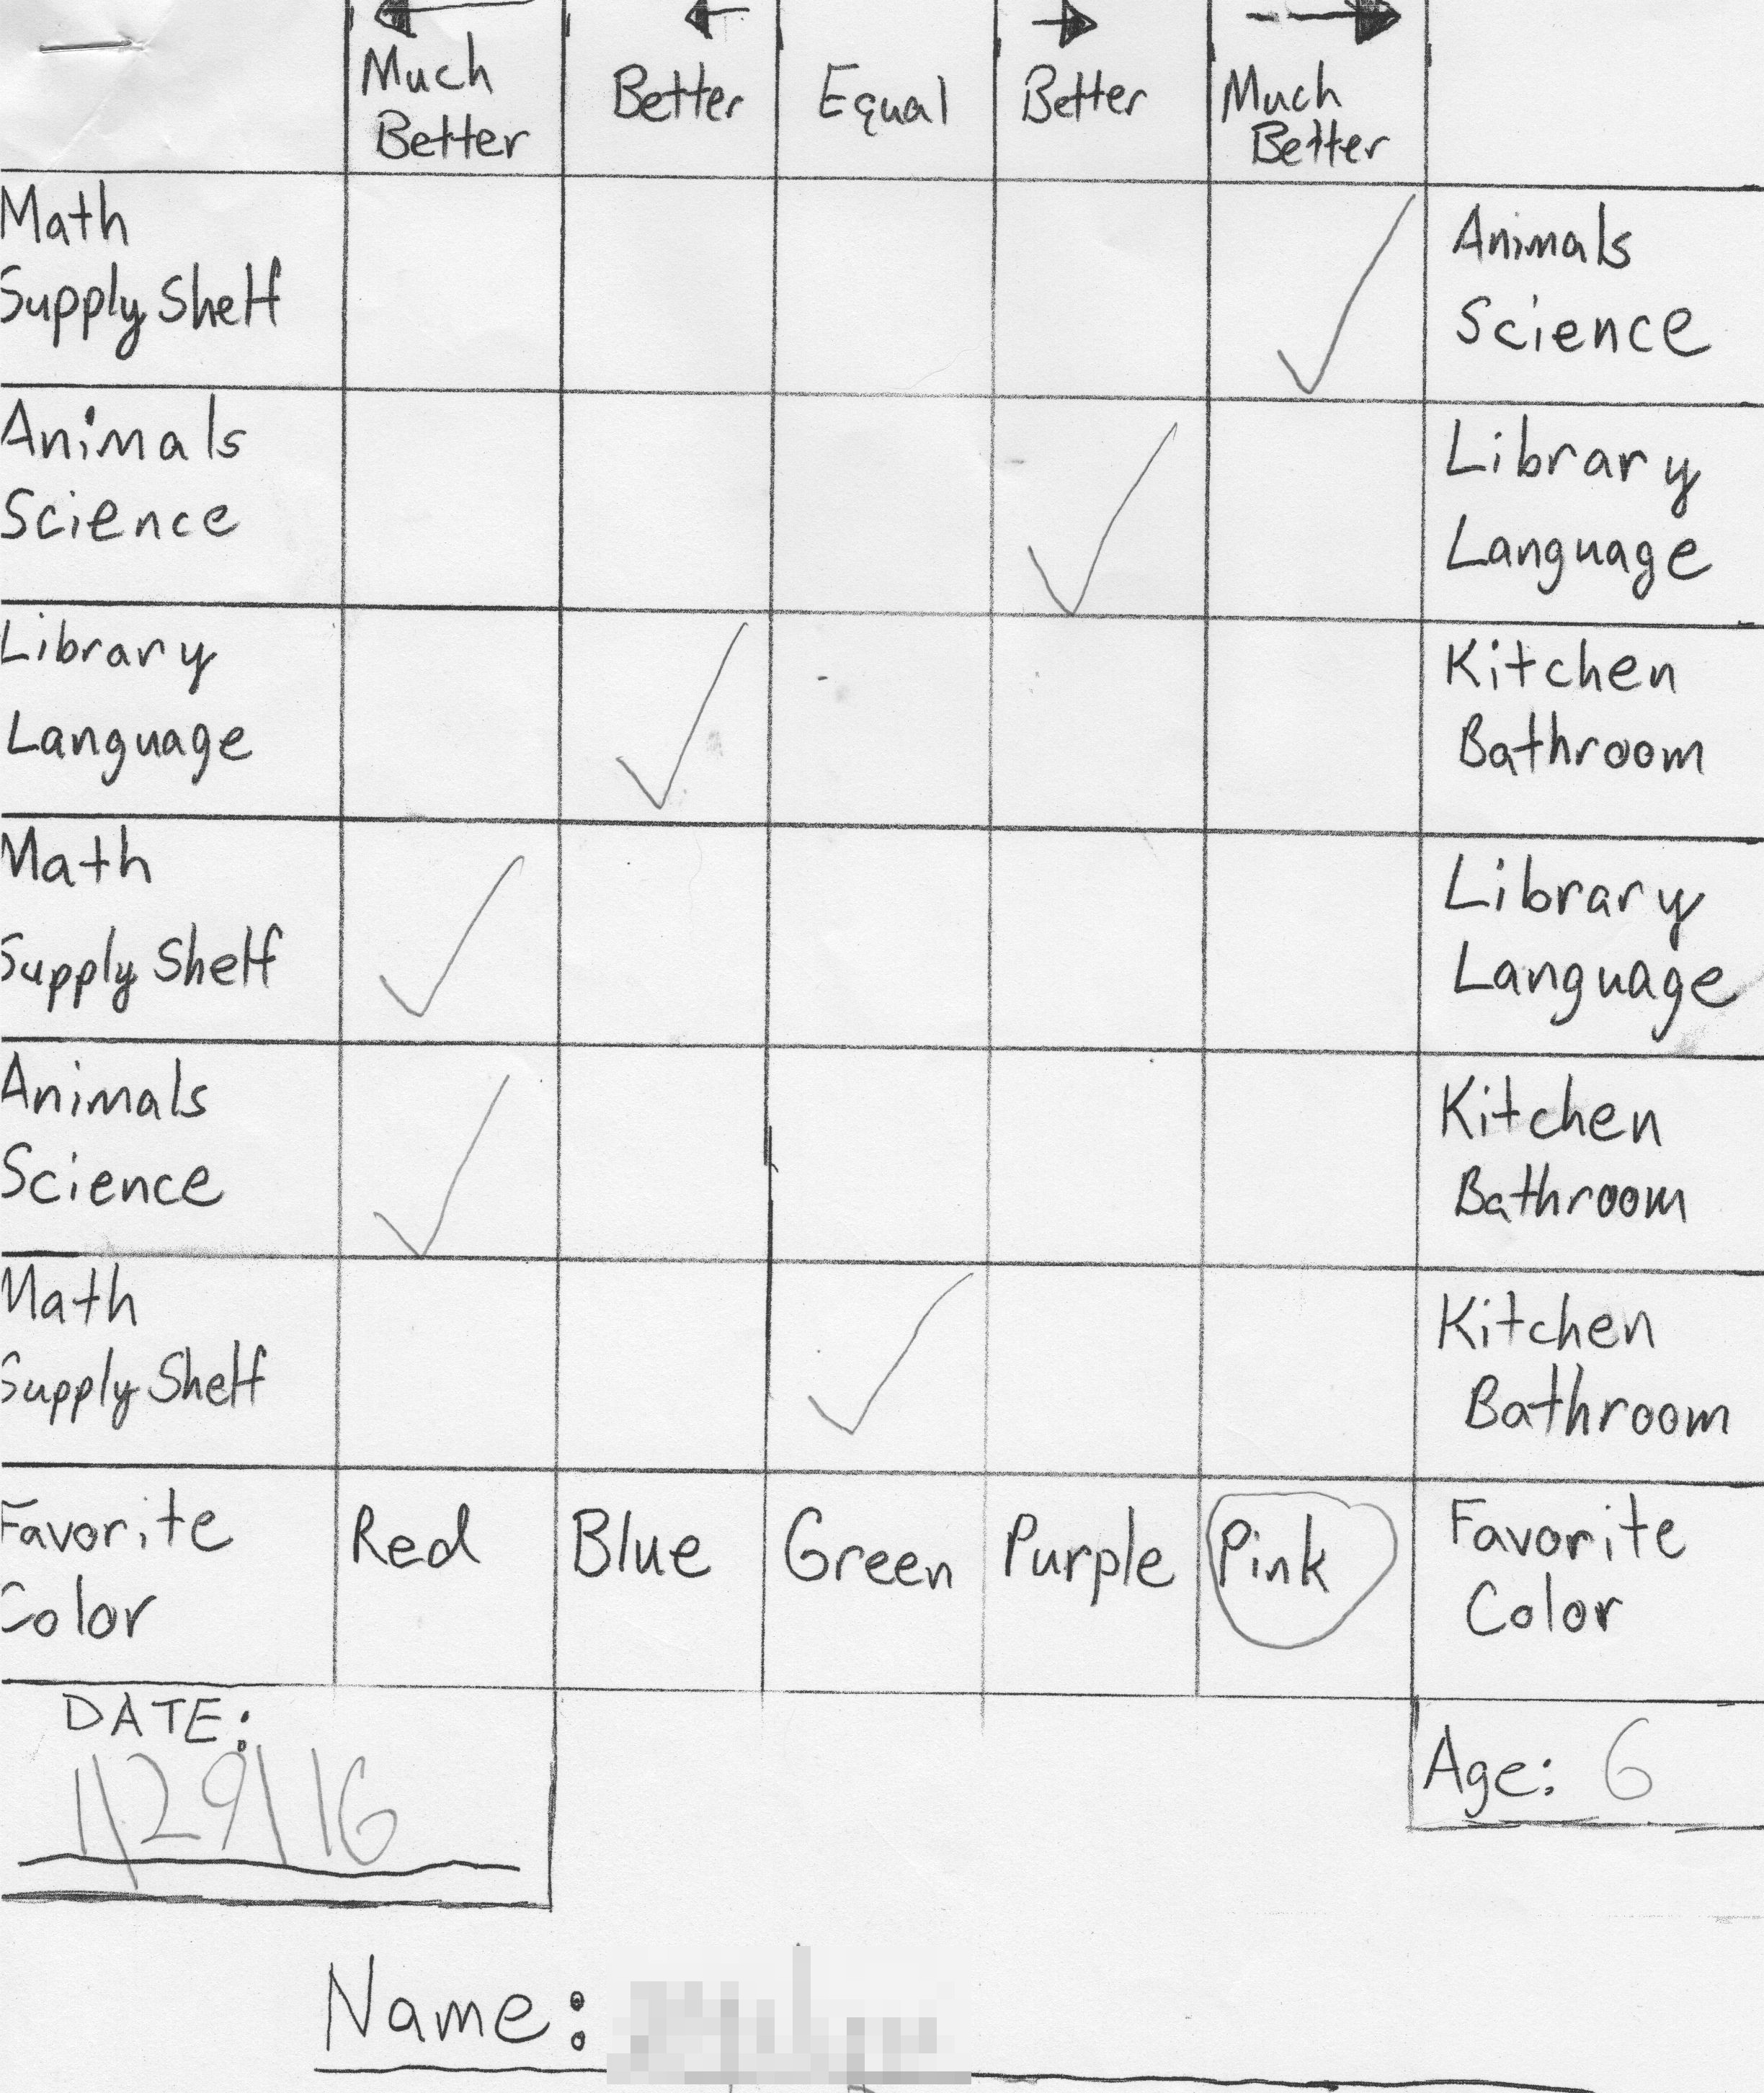 Much Better
Better
Equal
Better
Much Better
Math
Supply Shelf
Animals
Science
Animals
Science
Library
Language
Library
Language
Kitchen
Bathroom
Math
Supply Shelf
Library
Language
Animals
Science
Kitchen
Bathroom
Math
Supply Shelf
Kitchen
Bathroom
Favorite
Color
Red
Blue
Green
Purple
Pink
Favorite
Color
DATE:
1/29/16
Age: 6
Name: